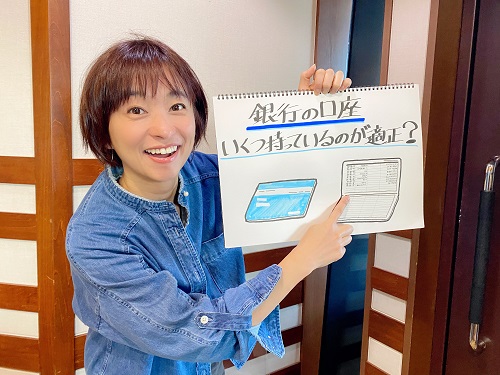 銀行の口座
いくつ持っているのが適正?